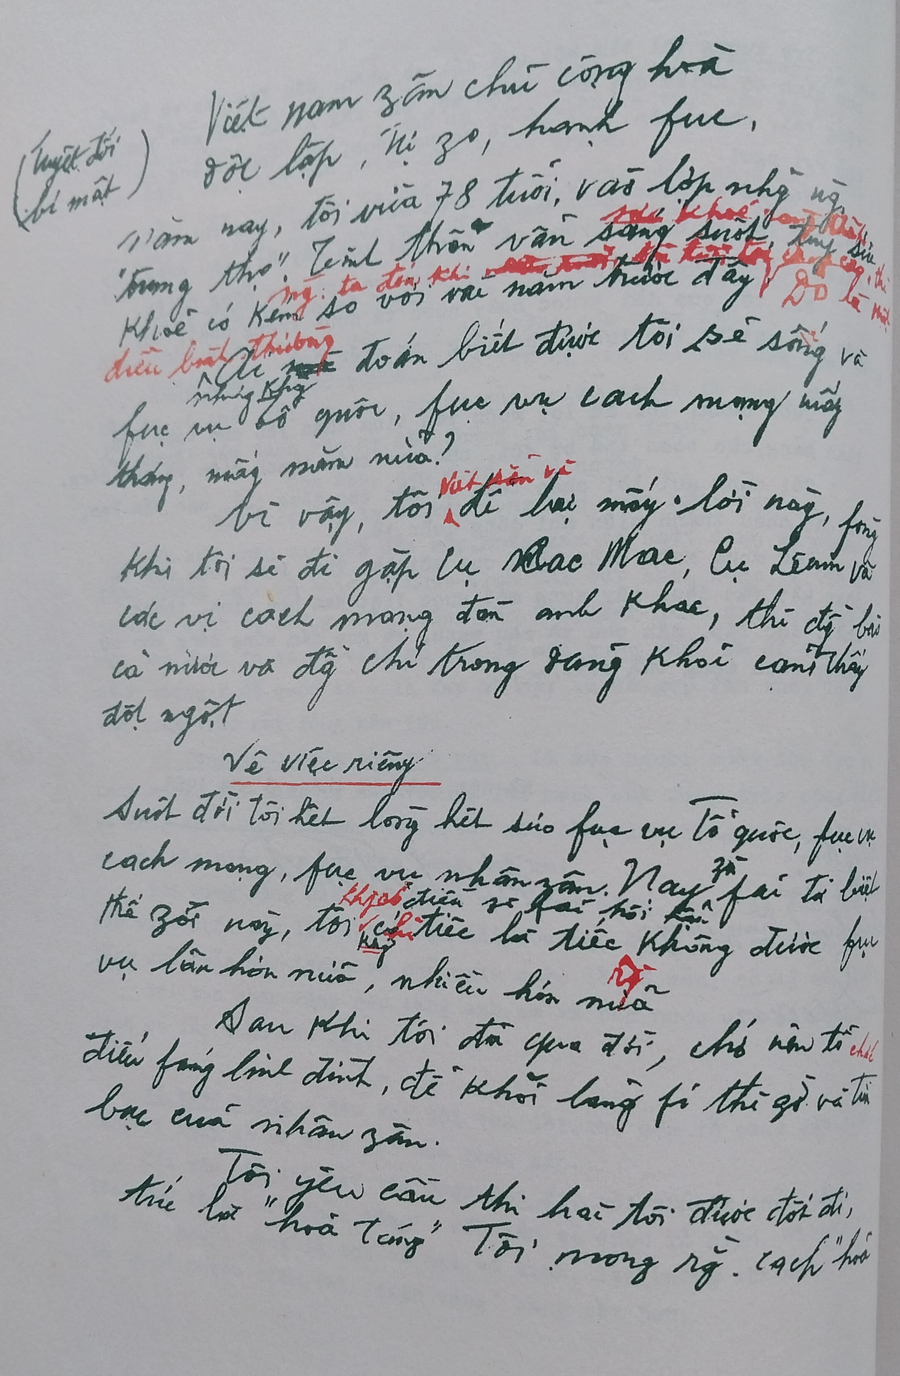 Việt nam zân chủ cộng hoà
độc lập, tự zo, hạnh fúc,
(Tuyệt đối
bí mật)
Năm nay, tôi vừa 78 tuổi, vào lớp nhữ ng
sức khoẻ
"trung thọ". Tinh thần vẫn sáng suốt, tuy sức
ng. ta đến khi
khoẻ có kém so với vài năm trước đây. Đó là một
điều bình thường
Ai mà đoán biết được tôi sẽ sống và
nhưng khg
fục vụ tổ quốc, fục vụ cách mạng mấy
tháng, mấy năm nữa?
Viết sẵn và
Vì vậy, tôi để lại mấy lời này, fòng
khi tôi sẽ đi gặp cụ Các Mác, Cụ Lênin và
các vị cách mạng đàn anh khác, thì đg bào
cả nước và đg chí trong đảng khỏi cảm thấy
đột ngột
Về việc riêng
Suốt đời tôi hết lòng hết sức fục vụ Tổ quốc, fục vụ
cách mạng, fục vụ nhân zân. Nay zù fải từ biệt
khg có điều gì fải hối hận
thế zới này, tôi chỉ tiếc là tiếc không được fục
vụ lâu hơn nữa, nhiều hơn nữa
Sau khi tôi đã qua đời, chớ nên tổ chức
điếu fúng linh đình, để khỏi lãng fí thì giờ và tiền
bạc của nhân zân.
Tôi yêu cầu thi hài tôi được đốt đi,
tức là "hoả táng" Tôi mong rằng. cách "hoả